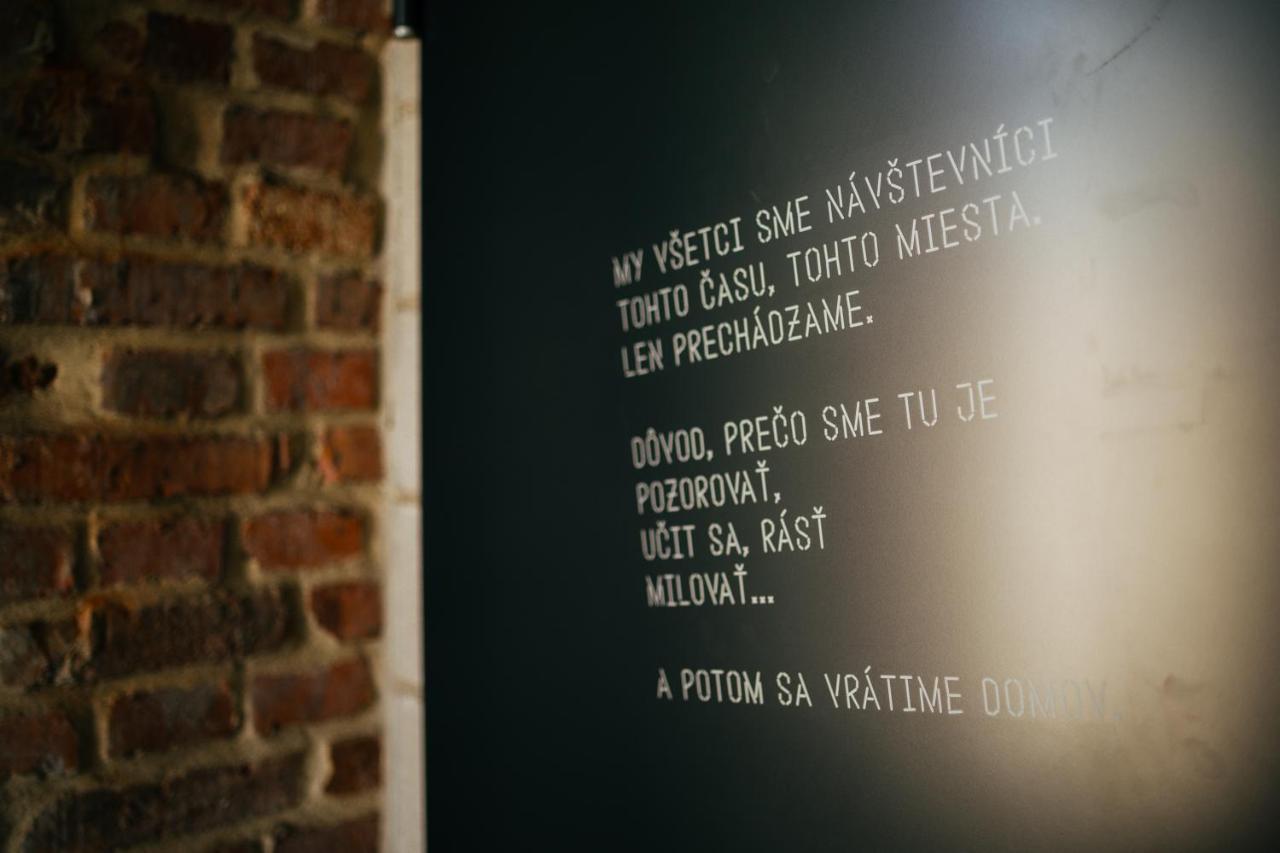 MY VŠETCI SME NÁVŠTEVNÍCI
TOHTO ČASU, TOHTO MIESTA.
LEN PRECHÁDZAME.
DÔVOD, PREČO SME TU JE
POZOROVAŤ,
UČIT SA, RÁSŤ
MILOVAŤ...
A POTOM SA VRÁTIME DOMOV.